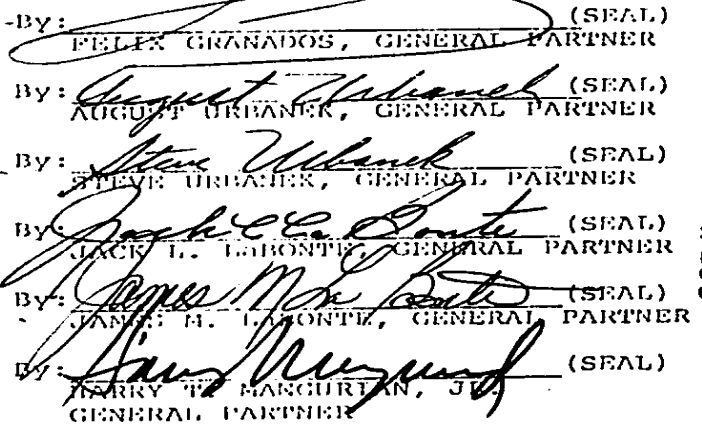 By: (SEAL)
FELIX GRANADOS, GENERAL PARTNER
By: August Urbanek (SEAL)
AUGUST URBANEK, GENERAL PARTNER
By: Steve Urbanek (SEAL)
STEVE URBANEK, GENERAL PARTNER
By: Jack L La Bonte (SEAL)
JACK L. LABONTE, GENERAL PARTNER
By: James M La Bonte (SEAL)
JAMES M. LABONTE, GENERAL PARTNER
By: (SEAL)
HARRY T. MANGURIAN, JR.
GENERAL PARTNER